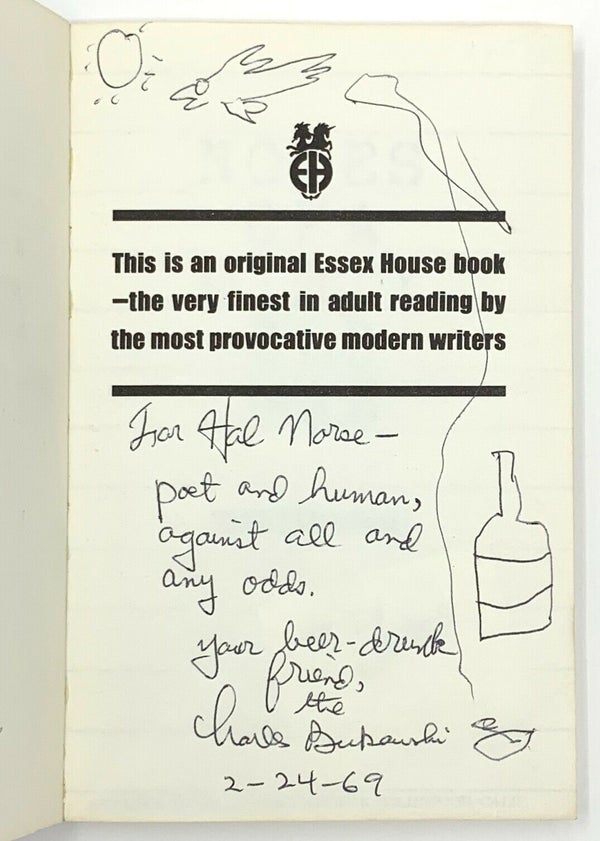 EH
This is an original Essex House book
—the very finest in adult reading by
the most provocative modern writers
For Hal Norse—
poet and human,
against all and
any odds.
your beer-drunk
friend,
the
Charles Bukowski
2-24-69